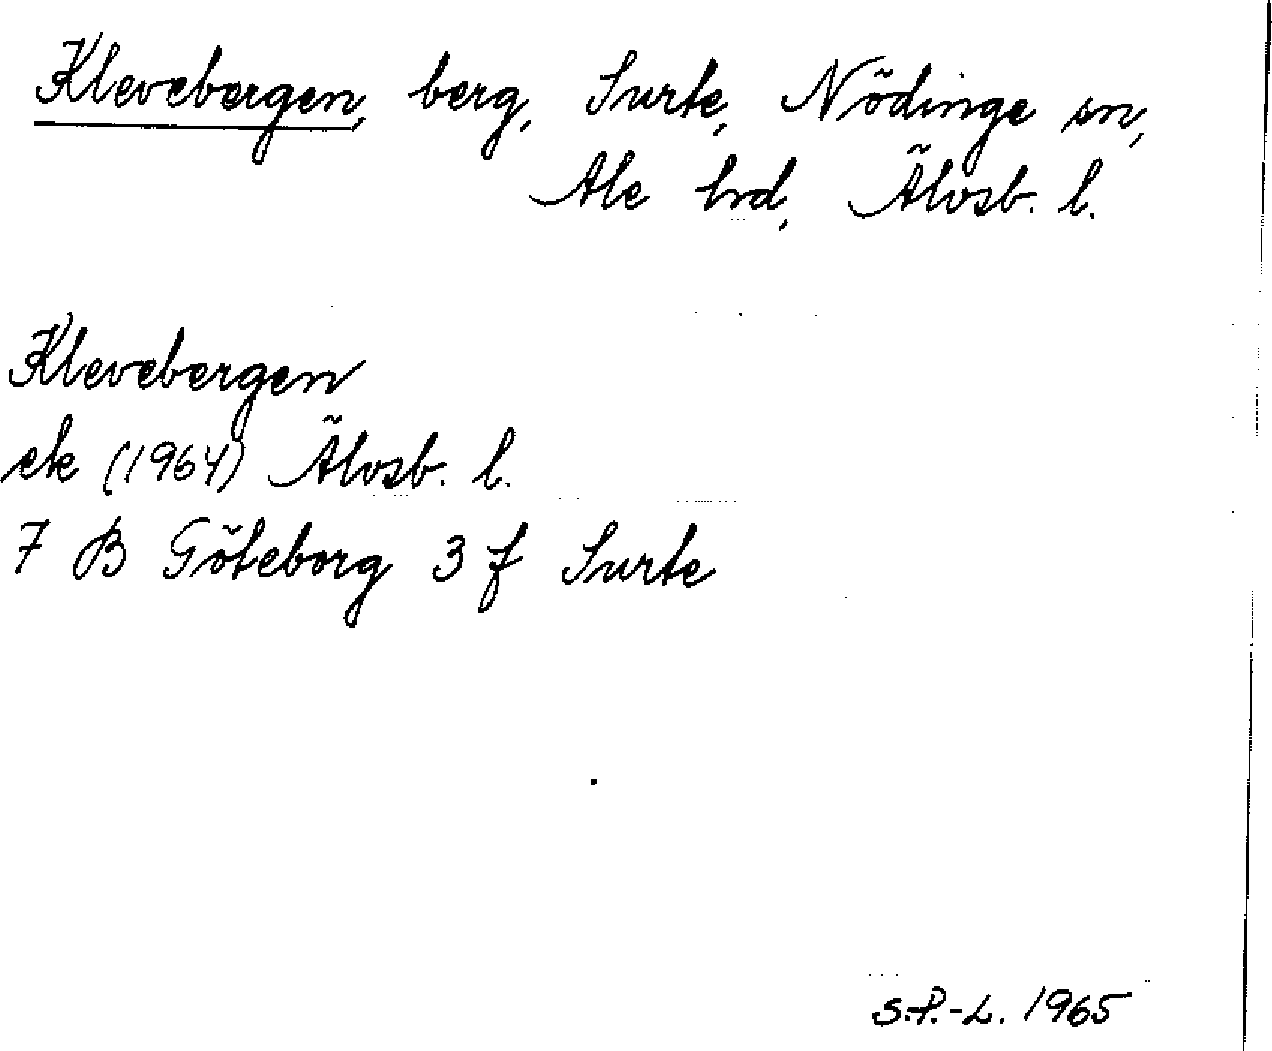 Klevebergen, berg, Surte, Nödinge sn,
Ale hrd, Älvsb. l.
Klevebergen
ek (1964) Älvsb. l.
7 B Göteborg 3 f Surte
S.P.-L. 1965